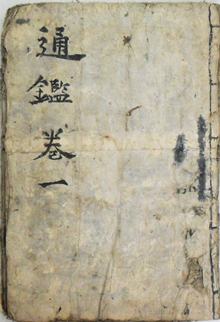 通鑑卷一